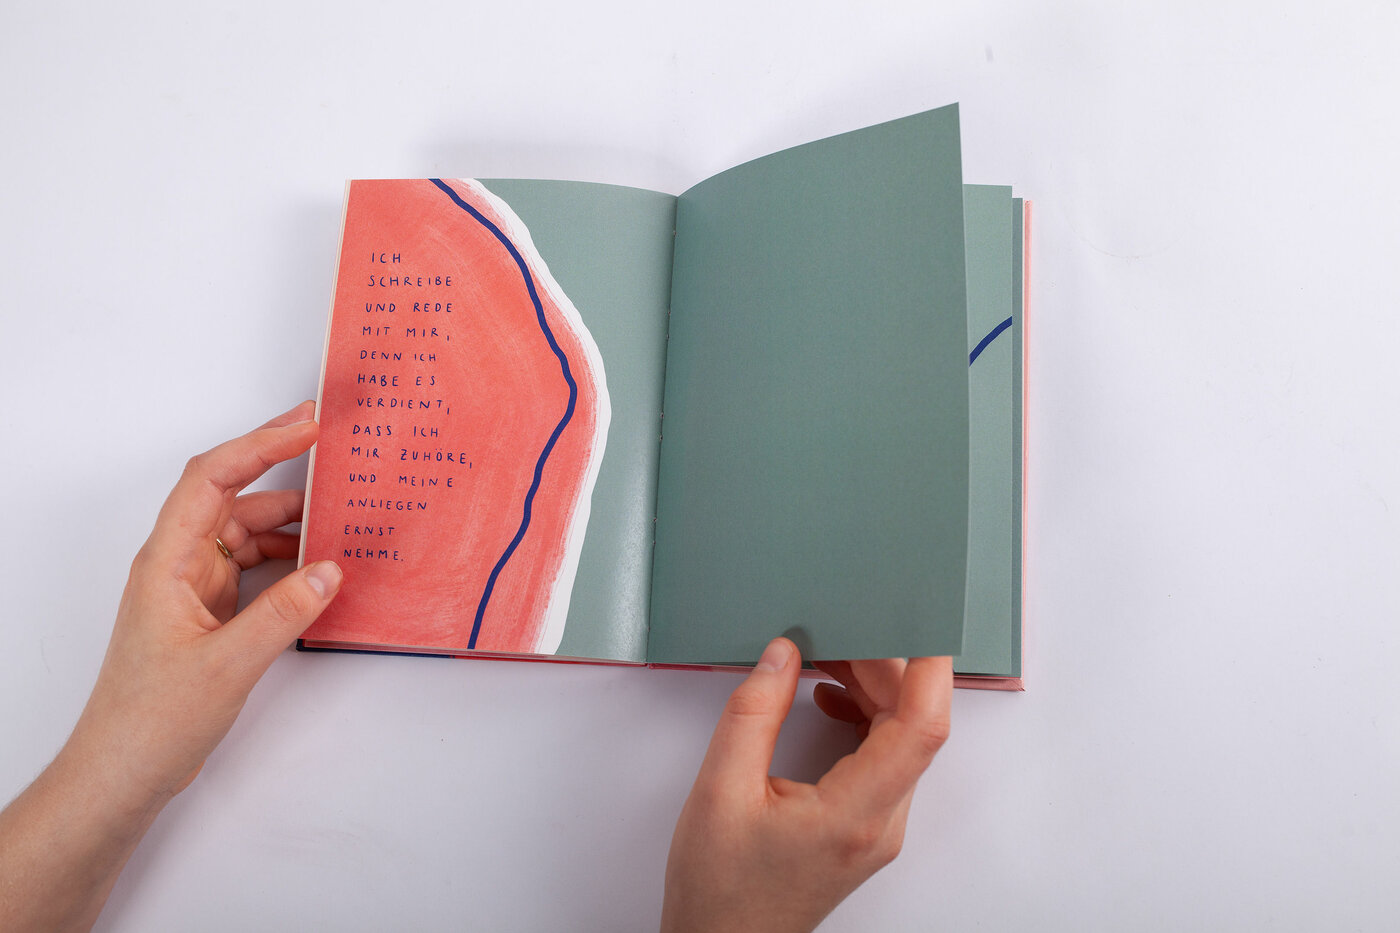 ICH
SCHREIBE
UND REDE
MIT MIR,
DENN ICH
HABE ES
VERDIENT,
DASS ICH
MIR ZUHÖRE,
UND MEINE
ANLIEGEN
ERNST
NEHME.